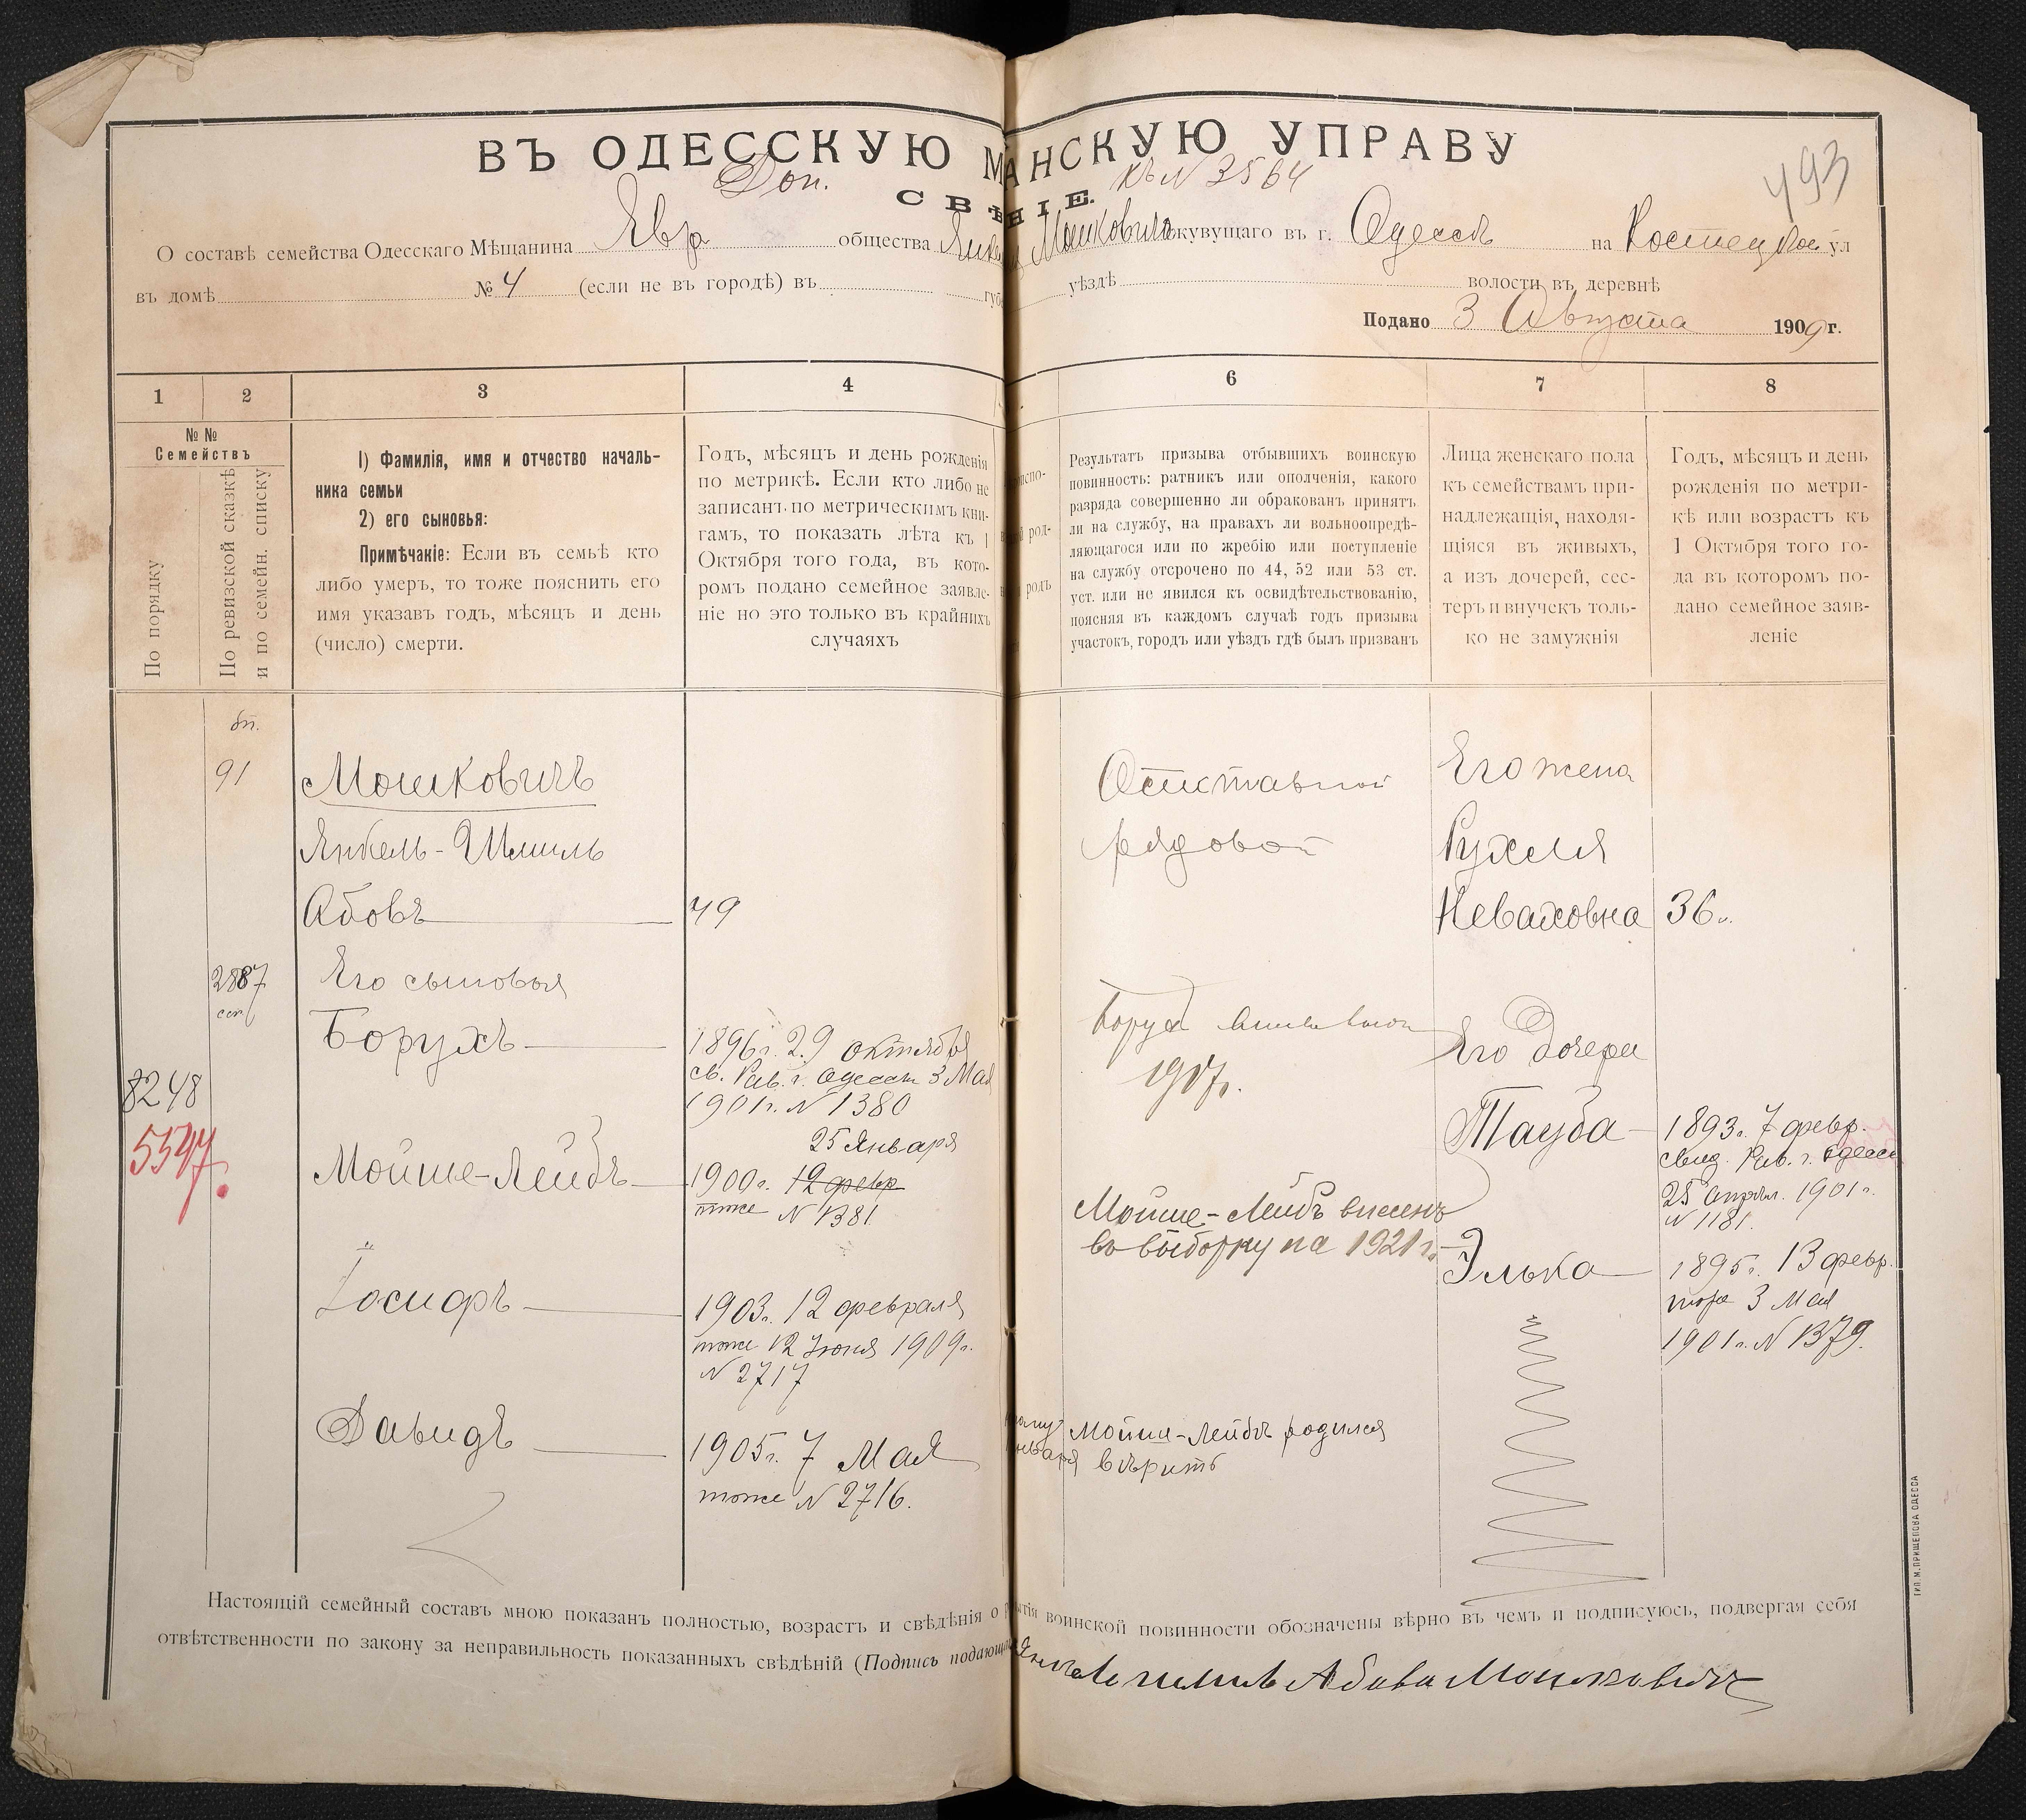 493
ВЪ ОДЕССКУЮ М АНСКУЮ УПРАВУ
Доп. къ N 3564
СВѢ НІЕ.
О составѣ семейства Одесскаго Мѣщанина Евр общества Янкеля Мошковича жувущаго въ г. Одессѣ на Костецкой ул
въ домѣ № 4 (если не въ городѣ) въ губ уѣздѣ волости въ деревнѣ
Подано 3 Августа 1909 г.
1
2
3
4
6
7
8
№ №
Семействъ
По порядку
По ревизской сказкѣ
и по семейн. списку
1) Фамилія, имя и отчество началь-
ника семьи
2) его сыновья:
Примѣчакіе: Если въ семьѣ кто
либо умеръ, то тоже пояснить его
имя указавъ годъ, мѣсяцъ и день
(число) смерти.
Годъ, мѣсяцъ и день рожденія
по метрикѣ. Если кто либо не
записанъ по метрическимъ кни-
гамъ, то показать лѣта къ 1
Октября того года, въ кото-
ромъ подано семейное заявле-
ніе но это только въ крайнихъ
случаяхъ
Результатъ призыва отбывшихъ воинскую
повинность: ратникъ или ополченія, какого
разряда совершенно ли обракованъ принятъ
ли на службу, на правахъ ли вольноопредѣ-
ляющагося или по жребію или поступленіе
на службу отсрочено по 44, 52 или 53 ст.
уст. или не явился къ освидѣтельствованію,
поясняя въ каждомъ случаѣ годъ призыва
участокъ, городъ или уѣздъ гдѣ былъ призванъ
Лица женскаго пола
къ семействамъ при-
надлежащія, находя-
щіяся въ живыхъ,
а изъ дочерей, сес-
теръ и внучекъ толь-
ко не замужнія
Годъ, мѣсяцъ и день
рожденія по метри-
кѣ или возрастъ къ
1 Октября того го-
да въ которомъ по-
дано семейное заяв-
леніе
бп.
91
2887
сем
8248
5547.
Мошковичъ
Янкель-Шмиль
Абовъ 49
Его сыновья
Борухъ 1896 г. 29 октября
св. Рав. г. Одессы 3 Мая
1901 г. N 1380
25 Января
Мойше-Лейбъ 1900 г. 12 февр
тоже N 1381
Іосифъ 1903 г. 12 февраля
тоже 12 Іюня 1909 г.
N 2717
Давидъ 1905 г. 7 Мая
тоже N 2716.
Отставной
рядовой
Борух
1917 г.
Мойше-Лейбъ внесенъ
въ выборку на 1921 г.
Мойше-Лейбъ родился
января вѣрить
Его жена
Рухля
Неваховна 36 л.
Его дочери
Тауба 1893 г. 7 февр.
свид. Рав. г. Одессы
25 апрѣл. 1901 г.
N 1181.
Элька 1895 г. 13 февр.
тоже 3 Мая
1901 г. N 1379.
Настоящій семейный составъ мною показанъ полностью, возрастъ и свѣдѣнія о ытія воинской повинности обозначены вѣрно въ чемъ и подписуюсь, подвергая себя
отвѣтственности по закону за неправильность показанныхъ свѣдѣній (Подпись подающаго) Янкель Шмиль Абовъ Мошковичъ
ТИП. М. ПРИЩЕПОВА ОДЕССА